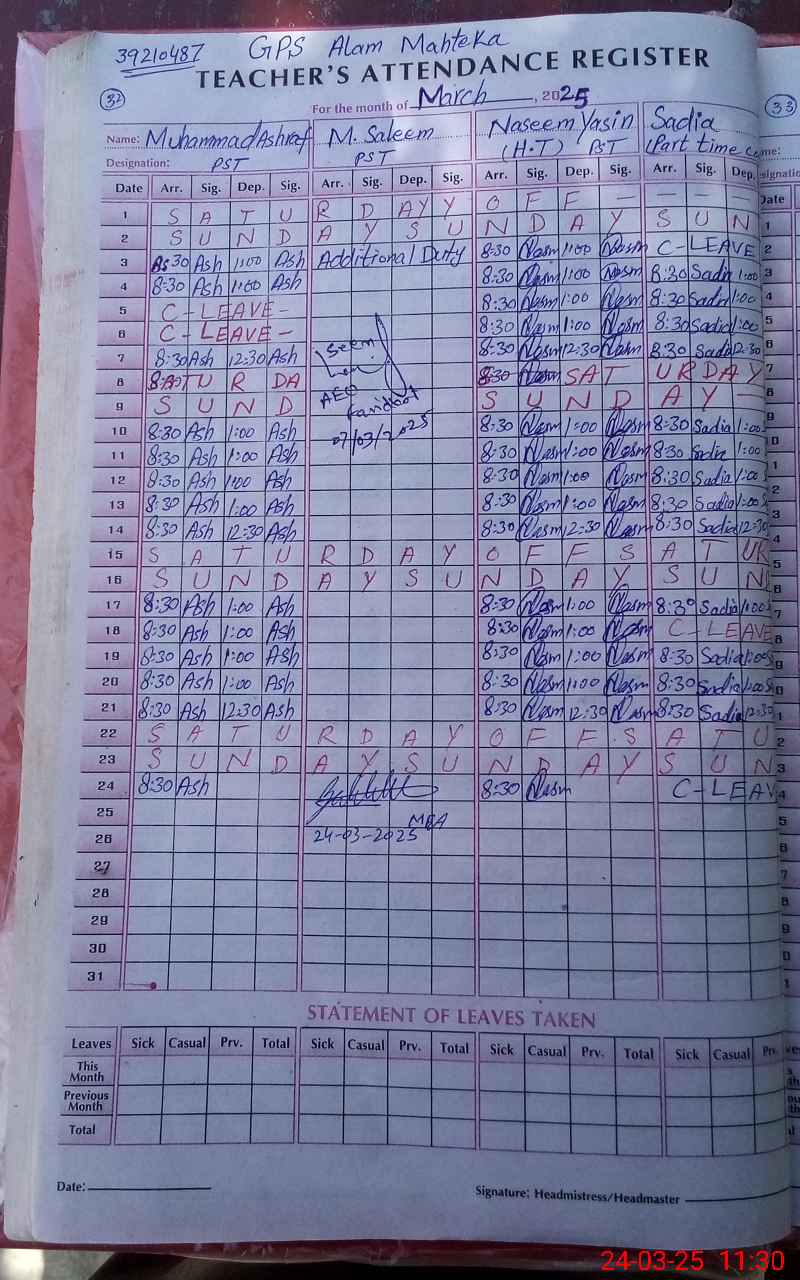 39210487 GPS Alam Mahteka
TEACHER'S ATTENDANCE REGISTER
32 For the month of March, 2025 33
Name: Muhammad Ashraf M. Saleem Naseem Yasin Sadia
Designation: PST PST (H.T) PST (Part time
Date Arr. Sig. Dep. Sig. Arr. Sig. Dep. Sig. Arr. Sig. Dep. Sig. Arr. Sig. Dep.
1 S A T U R D A Y Y O F F - - - -
2 S U N D A Y S U N D A Y S U N
3 8:30 Ash 1:00 Ash Additional Duty 8:30 Nasm 1:00 Nasm C-LEAVE
4 8:30 Ash 1:00 Ash 8:30 Nasm 1:00 Nasm 8:30 Sadia 1:00
5 C-LEAVE- 8:30 Nasm 1:00 Nasm 8:30 Sadia 1:00
6 C-LEAVE- 8:30 Nasm 1:00 Nasm 8:30 Sadia 1:00
7 8:30 Ash 12:30 Ash 8:30 Nasm 12:30 Nasm 8:30 Sadia 12:30
8 S A T U R DA 8:30 Nasm SAT URDAY
9 S U N D AEO S U N D A Y -
Faridkot
10 8:30 Ash 1:00 Ash 07/03/2025 8:30 Nasm 1:00 Nasm 8:30 Sadia 1:00
11 8:30 Ash 1:00 Ash 8:30 Nasm 1:00 Nasm 8:30 Sadia 1:00
12 8:30 Ash 1:00 Ash 8:30 Nasm 1:00 Nasm 8:30 Sadia 1:00
13 8:30 Ash 1:00 Ash 8:30 Nasm 1:00 Nasm 8:30 Sadia 1:00
14 8:30 Ash 12:30 Ash 8:30 Nasm 12:30 Nasm 8:30 Sadia 12:30
15 S A T U R D A Y O F F S A T UR
16 S U N D A Y S U N D A Y S U N
17 8:30 Ash 1:00 Ash 8:30 Nasm 1:00 Nasm 8:30 Sadia 1:00
18 8:30 Ash 1:00 Ash 8:30 Nasm 1:00 Nasm C-LEAVE
19 8:30 Ash 1:00 Ash 8:30 Nasm 1:00 Nasm 8:30 Sadia 1:00
20 8:30 Ash 1:00 Ash 8:30 Nasm 1:00 Nasm 8:30 Sadia 1:00
21 8:30 Ash 12:30 Ash 8:30 Nasm 12:30 Nasm 8:30 Sadia 12:30
22 S A T U R D A Y O F F S A T U
23 S U N D A Y S U N D A Y S U N
24 8:30 Ash 8:30 Nasm C-LEAV
25 MEA
26 24-03-2025
27
28
29
30
31
STATEMENT OF LEAVES TAKEN
Leaves Sick Casual Prv. Total Sick Casual Prv. Total Sick Casual Prv. Total Sick Casual Prv.
This Month
Previous Month
Total
Date: Signature: Headmistress/Headmaster
24-03-25 11:30